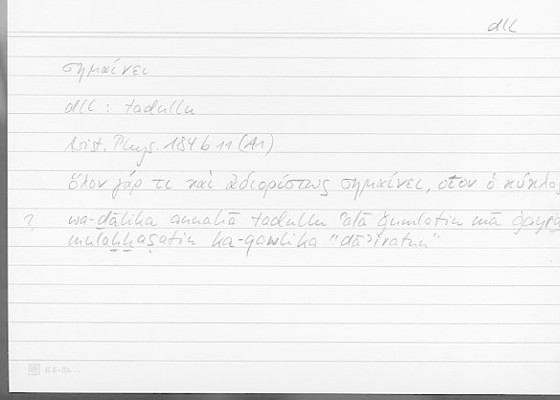 dll
σημαίνει
dll : tadullu
Arist. Phys. 184 b 11 (A1)
ὅλον γάρ τι καὶ ἀδιορίστως σημαίνει, οἷον ὁ κύκλος
? wa-ḏālika annahā tadullu ʿalā ǧumlatin mā ġayra
mulaḫḫaṣatin ka-qawlika "dāʾiratun"